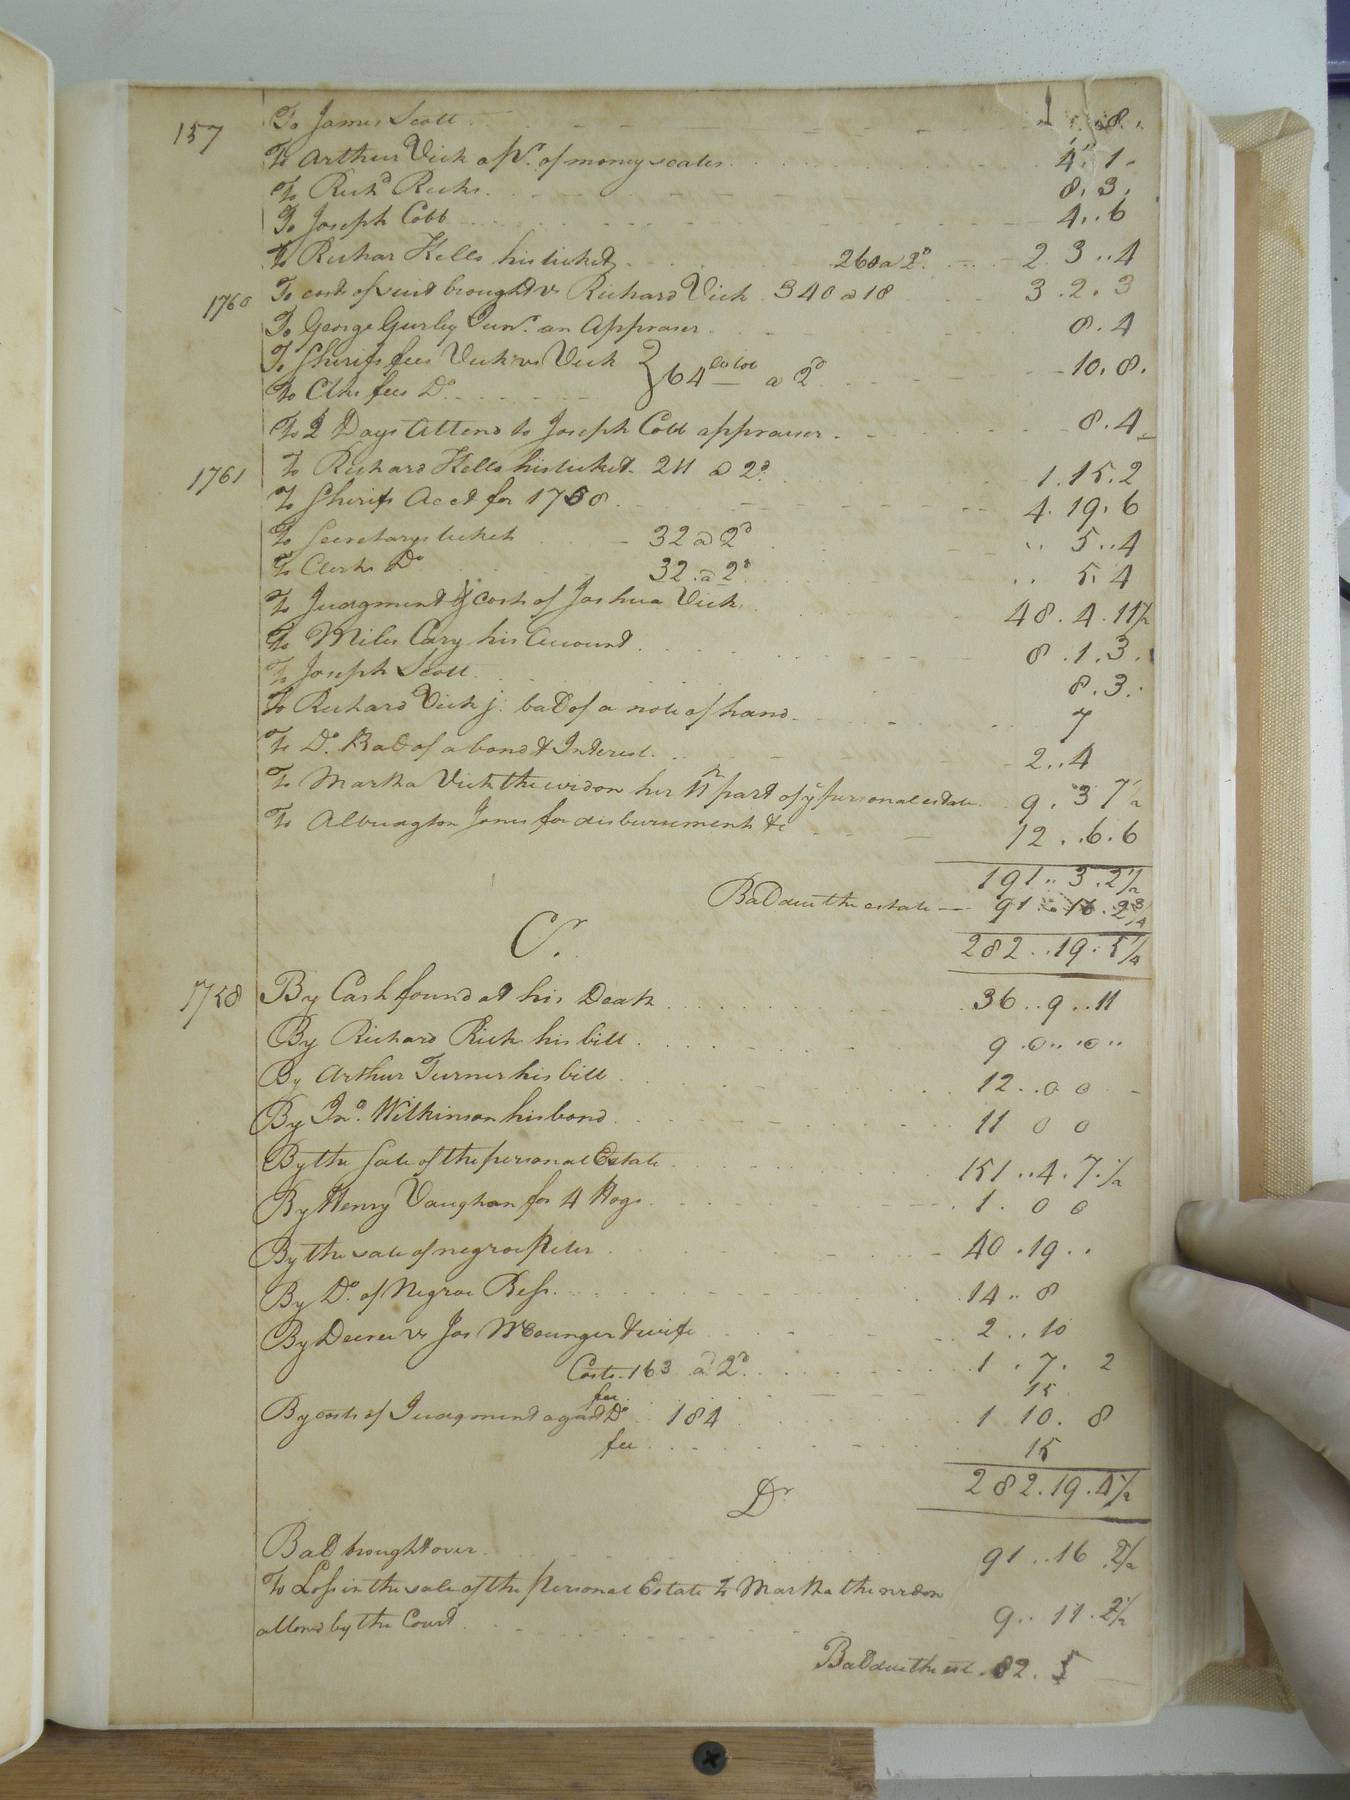 157 To James Scott 1 . 8 .
To Arthur Vick a pr. of money scales 4 . 1 .
To Richd Ricks 8 . 3 .
To Joseph Cobb 4 .. 6
To Richar Kello his ticket 260 a 2d. 2 . 3 .. 4
1760 To costs of suit brought vs Richard Vick 340 a 18 3 . 2 . 3
To George Gurley Junr. an Appraser 8 . 4
To Sherifs fees Vick vs Vick } 64 a 2d 10 . 8 .
To Clks fees Do
To 2 Days Attend to Joseph Cobb appraiser . 8 . 4
1761 To Richard Kello his ticket 211 a 2d. 1 . 15 . 2
To Sherifs Acct for 1758 4 . 19 . 6
To Secretarys ticket 32 a 2d .. 5 .. 4
To Clerks Do 32 . a 2d. .. 5 . 4
To Judgment & costs of Joshua Vick 48 . 4 . 11 1/2
To Miles Cary his Account 8 . 1 . 3 .
To Joseph Scott 8 . 3 .
To Richard Vick j. bal of a note of hand 7
To Do. Bal of a bond & Interest 2 .. 4
To Martha Vick the widow her 11th part of ye personal estate 9 . 3 7 1/2
To Albridgton Jones for disbursement &c 12 .. 6 . 6
191 .. 3 . 2 1/2
Bal due the estate — 91 . 16 . 2 3/4
282 .. 19 . 5 1/4
Cr.
1758 By Cash found at his Death 36 .. 9 .. 11
By Richard Rick his bill 9 . 0 .. 0 ..
By Arthur Turner his bill 12 .. 0 0
By Jno. Wilkinson his bond 11 0 0
By the Sale of the personal Estate 151 .. 4 . 7 . 1/2
By Henry Vaughan for 4 Hogs 1 . 0 0
By the sale of negroe Peter 40 . 19 . .
By Do. of Negroe Bess 14 .. 8
By Decree vs Jas & wife 2 .. 10
Costs 163 a 2d. 1 . 7 . 2
fee 15
By costs of Judgment agast Do 184 1 10 . 8
fee 15
282 . 19 . 4 1/2
Dr
Bal brought over 91 .. 16 . 2 1/2
To Loss in the sale of the Personal Estate to Martha the widow
allowd by the Court 9 .. 11 . 2 1/2
Bal due the est . 82 . 5 —